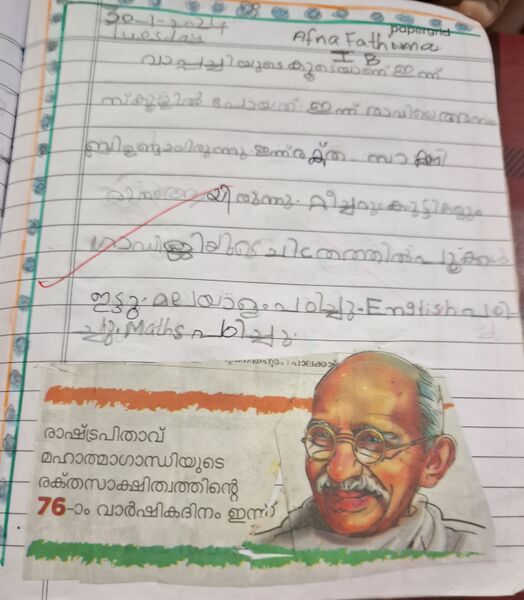 30-1-2024
Tuesday
papergrid
Afna Fathima
I B
വാപ്പച്ചിയുടെ കൂടെയാണ് ഇന്ന്
സ്കൂളിൽ പോയത്. ഇന്ന് രാവിലെ അസം
ബ്ലി ഉണ്ടായിരുന്നു. ഇന്ന് രക്ത സാക്ഷി
ദിനം ആയിരുന്നു. ടീച്ചറും കുട്ടികളും
ഗാന്ധിജിയുടെ ചിത്രത്തിൽ പൂക്കൾ
ഇട്ടു. മലയാളം പഠിച്ചു. English പഠി
ച്ചു. Maths പഠിച്ചു.
പാലക്കാട്
രാഷ്ട്രപിതാവ്
മഹാത്മാഗാന്ധിയുടെ
രക്തസാക്ഷിത്വത്തിന്റെ
76-ാം വാർഷികദിനം ഇന്ന്